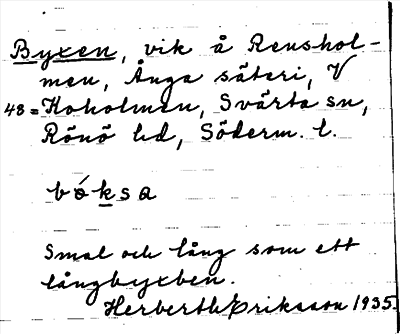 Byxen, vik å Renshol-
men, Ånga säteri, V
48 = Hoholmen, Svärta sn,
Rönö hd, Söderm. l.
bóksa
Smal och lång som ett
långbyxben.
Herberth Eriksson 1935.